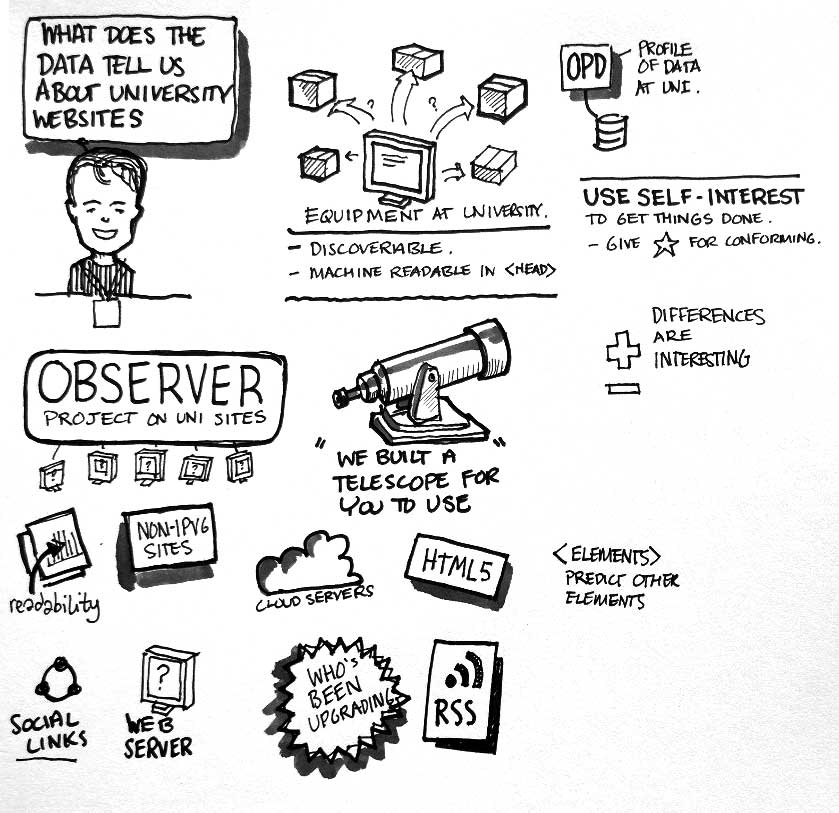 WHAT DOES THE
DATA TELL US
ABOUT UNIVERSITY
WEBSITES
? ?
EQUIPMENT AT UNIVERSITY.
- DISCOVERIABLE.
- MACHINE READABLE IN <HEAD>
OPD
PROFILE
OF DATA
AT UNI.
USE SELF-INTEREST
TO GET THINGS DONE.
- GIVE ☆ FOR CONFORMING.
+
-
DIFFERENCES
ARE
INTERESTING
OBSERVER
PROJECT ON UNI SITES
? ? ? ? ?
"WE BUILT A
TELESCOPE FOR
YOU TO USE"
readability
NON-IPV6
SITES
CLOUD SERVERS
HTML5
<ELEMENTS>
PREDICT OTHER
ELEMENTS
SOCIAL
LINKS
?
WEB
SERVER
WHO'S
BEEN
UPGRADING
RSS